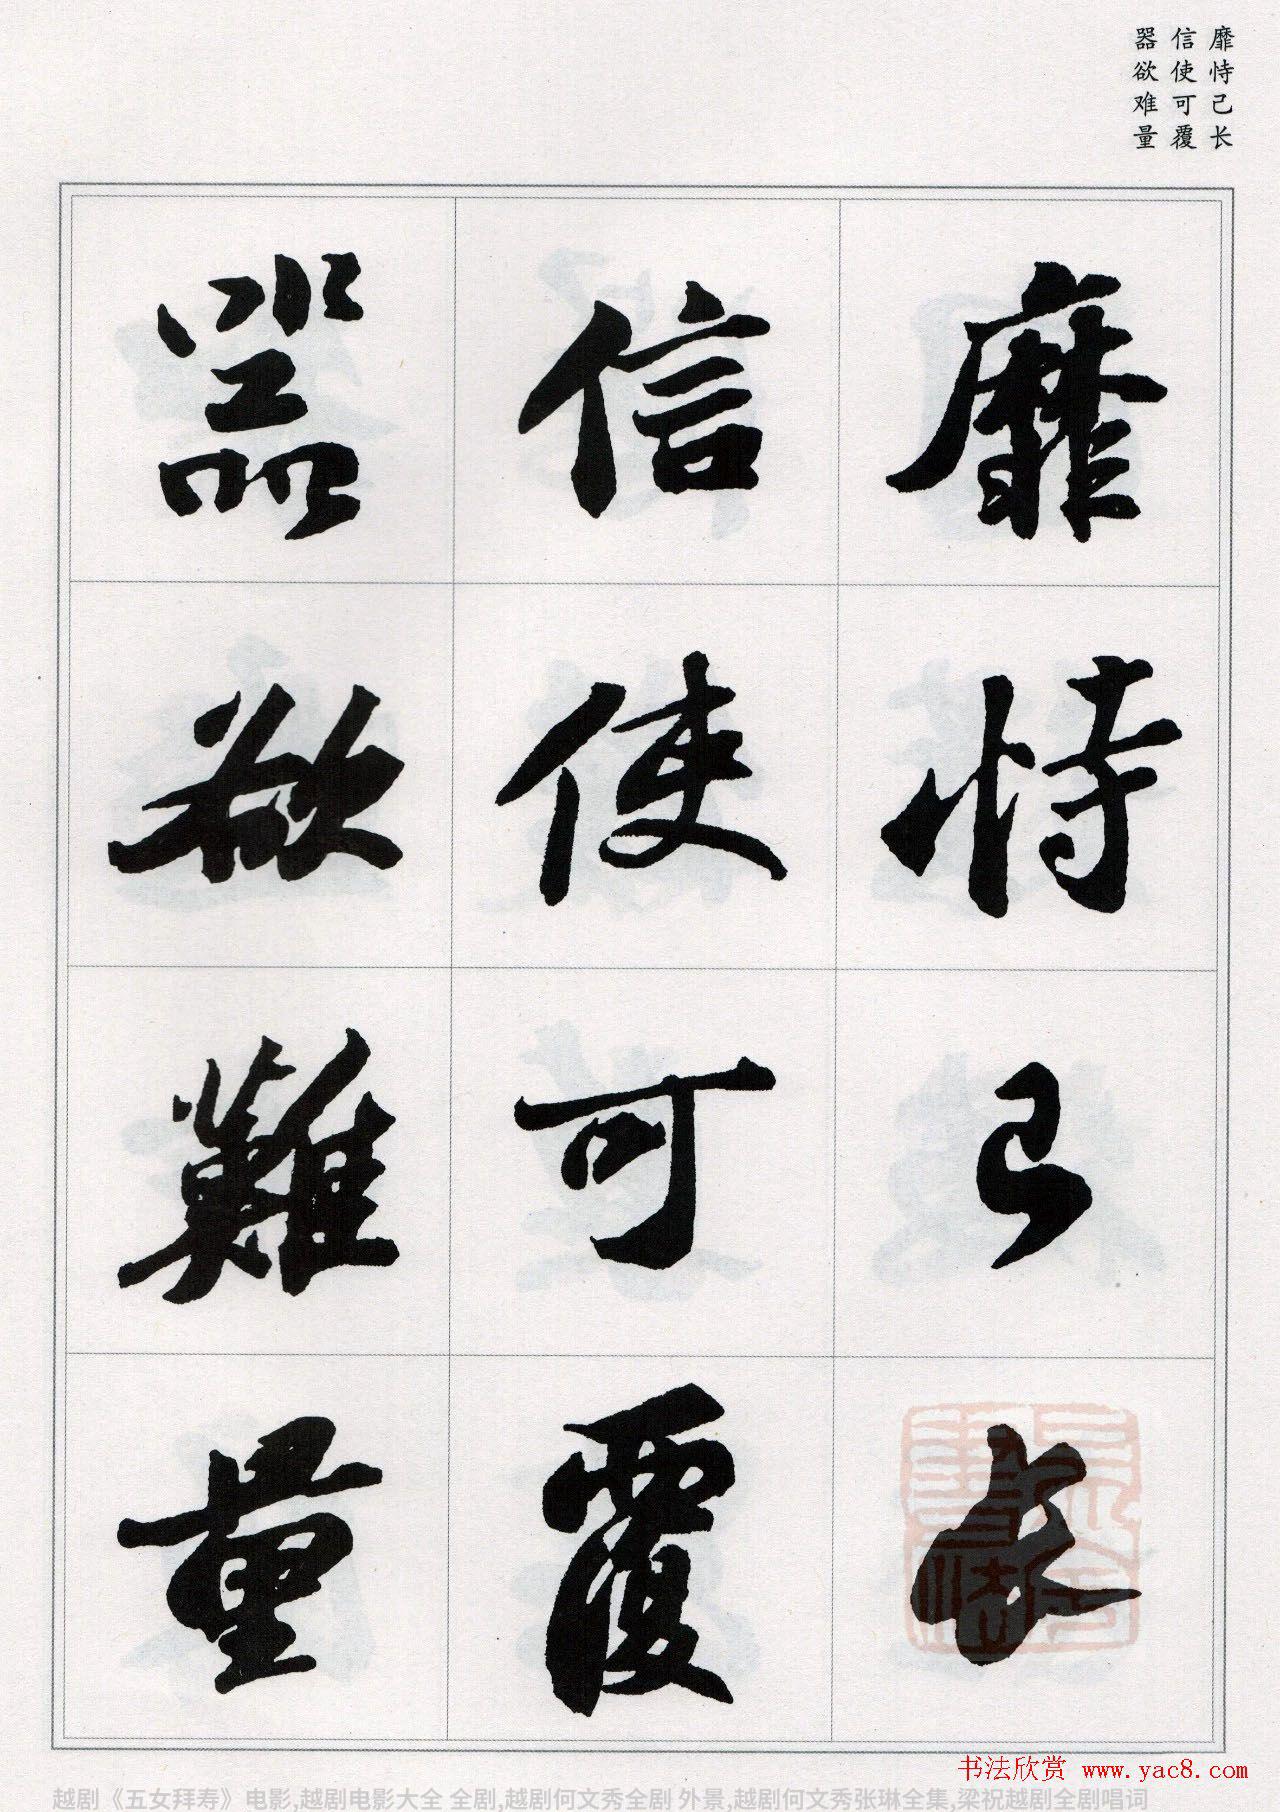 靡恃己长
信使可覆
器欲难量
靡恃己長
信使可覆
器欲難量
书法欣赏 www.yac8.com
越剧《五女拜寿》电影,越剧电影大全 全剧,越剧何文秀全剧 外景,越剧何文秀张琳全集,梁祝越剧全剧唱词